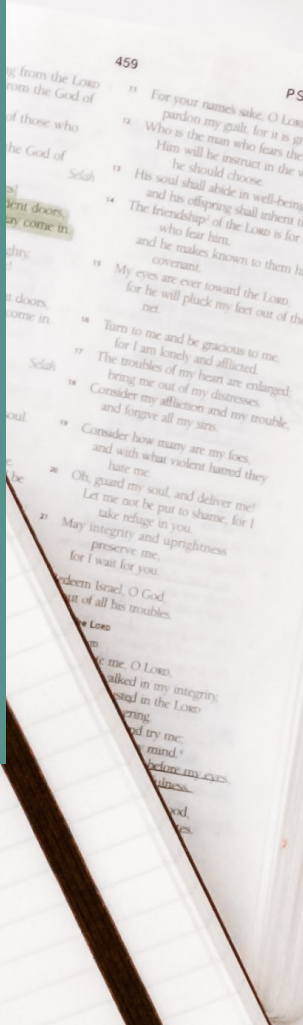 459
PS
from the LORD
from the God of
of those who
the God of
Selah
doors,
come in.
doors,
come in
Selah
soul.
be
11 For your name's sake, O LORD
pardon my guilt, for it is
12 Who is the man who fears the
Him will he instruct in the
he should choose.
13 His soul shall abide in well-being
and his offspring shall inherit
14 The friendship of the LORD is for
who fear him,
and he makes known to them
covenant.
15 My eyes are ever toward the LORD,
for he will pluck my feet out of the
net.
16 Turn to me and be gracious to me,
for I am lonely and afflicted.
17 The troubles of my heart are enlarged;
bring me out of my distresses.
18 Consider my affliction and my trouble,
and forgive all my sins.
19 Consider how many are my foes,
and with what violent hatred they
hate me.
20 Oh, guard my soul, and deliver me!
Let me not be put to shame, for I
take refuge in you.
21 May integrity and uprightness
preserve me,
for I wait for you.
Israel, O God,
out of all his troubles.
LORD
me, O LORD,
walked in my integrity,
in the LORD
and try me;
my mind.
before my eyes,